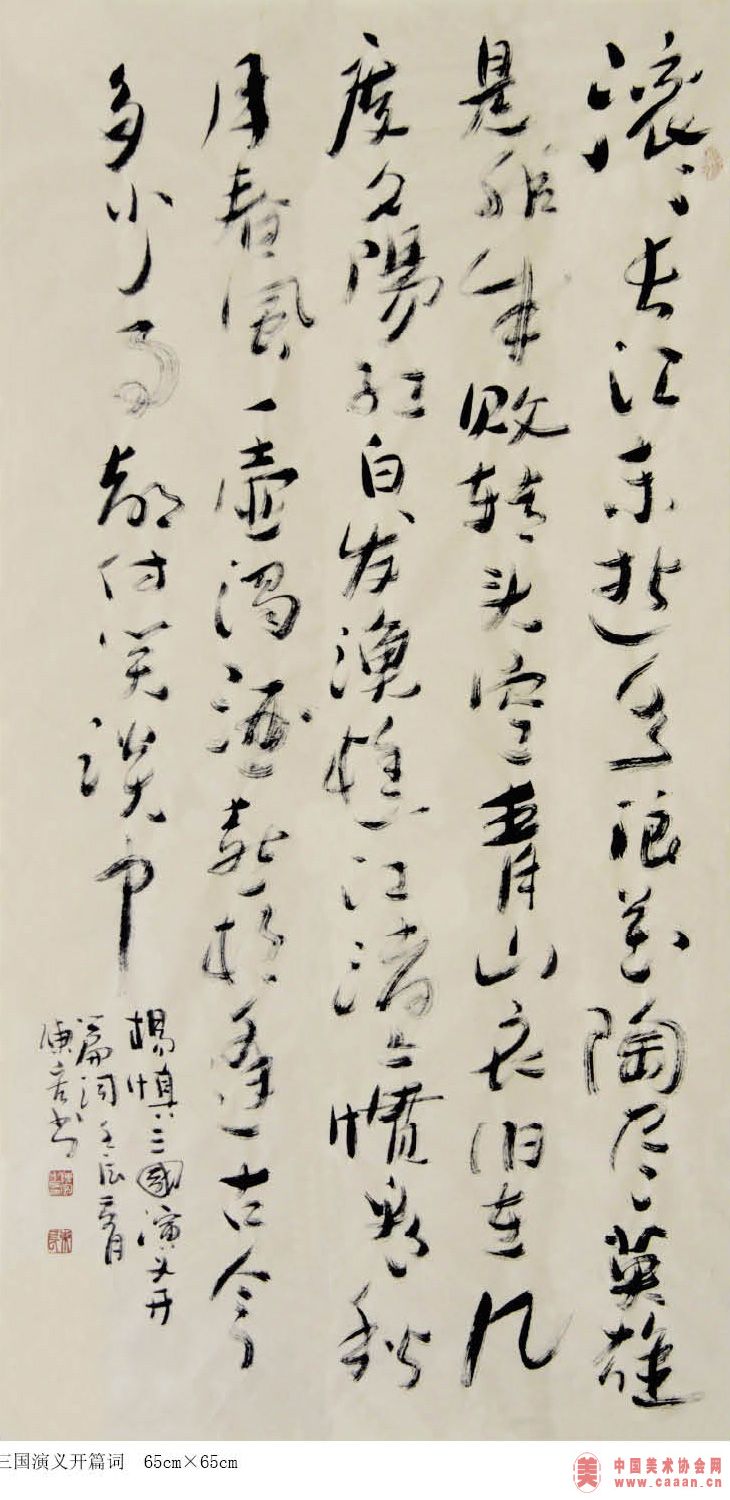 滚〻长江东逝水浪花陶尽英雄
是非成败转头空青山依旧在几
度夕陽红白发渔樵江渚上惯看秋
月春風一壶浊酒喜相逢古今
多少事都付笑谈中
楊慎三國演义开
篇词壬辰月
书
三国演义开篇词 65cm×65cm
美 中国美术协会网
www.caaan.cn